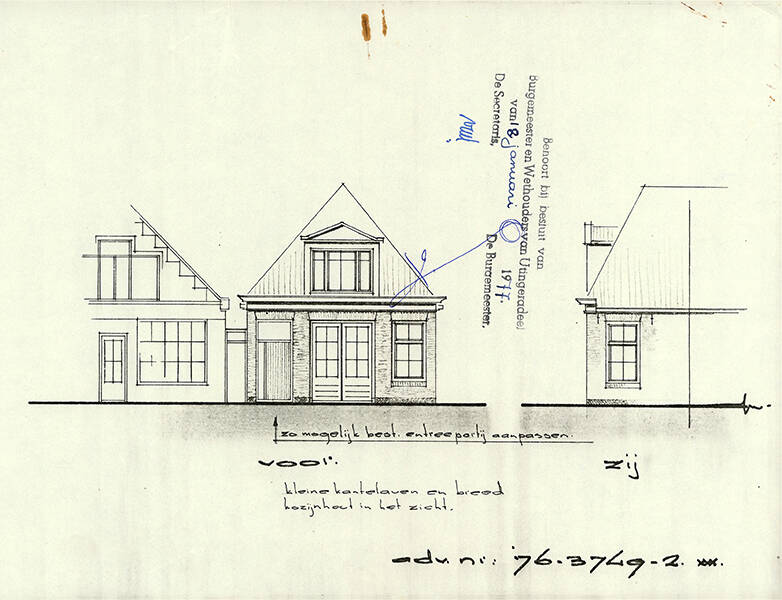 Behoort bij besluit van
Burgemeester en Wethouders van Utingeradeel
van 18 januari 1977.
De Secretaris, De Burgemeester,
zo mogelijk best. entreepartij aanpassen.
voor.
zij
kleine kantelaven en breed
kozijnhout in het zicht.
adv. nr: '76-3749-2.